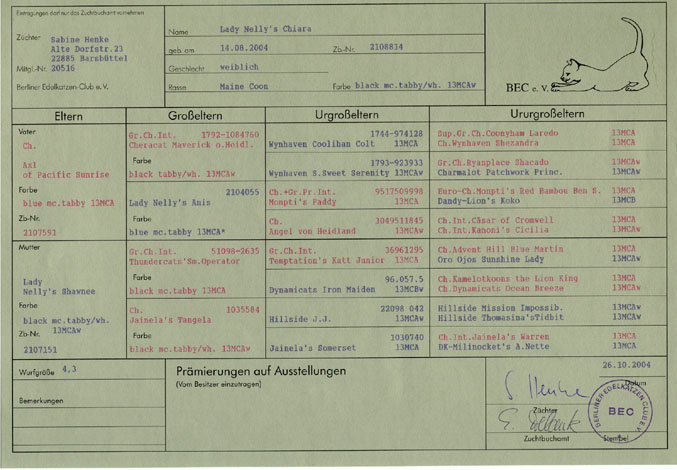 Eintragungen darf nur das Zuchtbuchamt vornehmen
Züchter Sabine Henke
Alte Dorfstr.23
22885 Barsbüttel
Mitgl.-Nr. 20516
Berliner Edelkatzen-Club e. V.
Name Lady Nelly's Chiara
geb. am 14.08.2004 Zb.-Nr. 2108814
Geschlecht weiblich
Rasse Maine Coon Farbe black mc.tabby/wh. 13MCAw
BEC e. V.
Eltern Großeltern Urgroßeltern Ururgroßeltern
Vater
Ch.
Axl
of Pacific Sunrise
Farbe
blue mc.tabby 13MCA
Zb-Nr.
2107591
Mutter
Lady
Nelly's Shawnee
Farbe
black mc.tabby/wh.
Zb-Nr. 13MCAw
2107151
Gr.Ch.Int. 1792-1084760
Cheracat Maverick o.Heidl.
Farbe
black tabby/wh. 13MCAw
2104055
Lady Nelly's Anis
Farbe
blue mc.tabby 13MCA*
Gr.Ch.Int. 51098-2635
Thundercats'Sm.Operator
Farbe
black mc.tabby 13MCA
Ch. 1035584
Jainela's Tangela
Farbe
black mc.tabby/wh. 13MCAw
1744-974128
Wynhaven Coolihan Colt 13MCA
1793-923933
Wynhaven S.Sweet Serenity 13MCAw
Ch.+Gr.Pr.Int. 9517509998
Mompti's Paddy 13MCA
Ch. 3049511845
Angel vom Heidland 13MCAw
Gr.Ch.Int. 36961295
Temptation's Katt Junior 13MCA
96.057.5
Dynamicats Iron Maiden 13MCBw
22098 042
Hillside J.J. 13MCAw
1030740
Jainela's Somerset 13MCA
Sup.Gr.Ch.Coonyham Laredo 13MCA
Ch.Wynhaven Shezandra 13MCA
Gr.Ch.Ryanplace Shacado 13MCAw
Charmalot Patchwork Princ. 13MCAw
Euro-Ch.Mompti's Red Rambou Ben S. 13MCA
Dandy-Lion's Koko 13MCB
Ch.Int.Cäsar of Cromwell 13MCAw
Ch.Int.Kanoni's Cicilia 13MCAw
Ch.Advent Hill Blue Martin 13MCA
Oro Ojos Sunshine Lady 13MCAw
Ch.Kamelotkoons the Lion King 13MCA
Ch.Dynamicats Ocean Breeze 13MCAw
Hillside Mission Impossib. 13MCAw
Hillside Thomasina'sTidbit 13MCAw
Ch.Int.Jainela's Warren 13MCA
DK-Milinocket's A.Nette 13MCA
Wurfgröße 4,3
Bemerkungen
Prämierungen auf Ausstellungen
(Vom Besitzer einzutragen)
26.10.2004
Datum
S. Henke
Züchter
Zuchtbuchamt Stempel
BERLINER EDELKATZEN CLUB E.V.
BEC